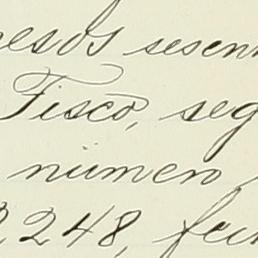 pesos sesen
Fisco, seg
número
2248, fec